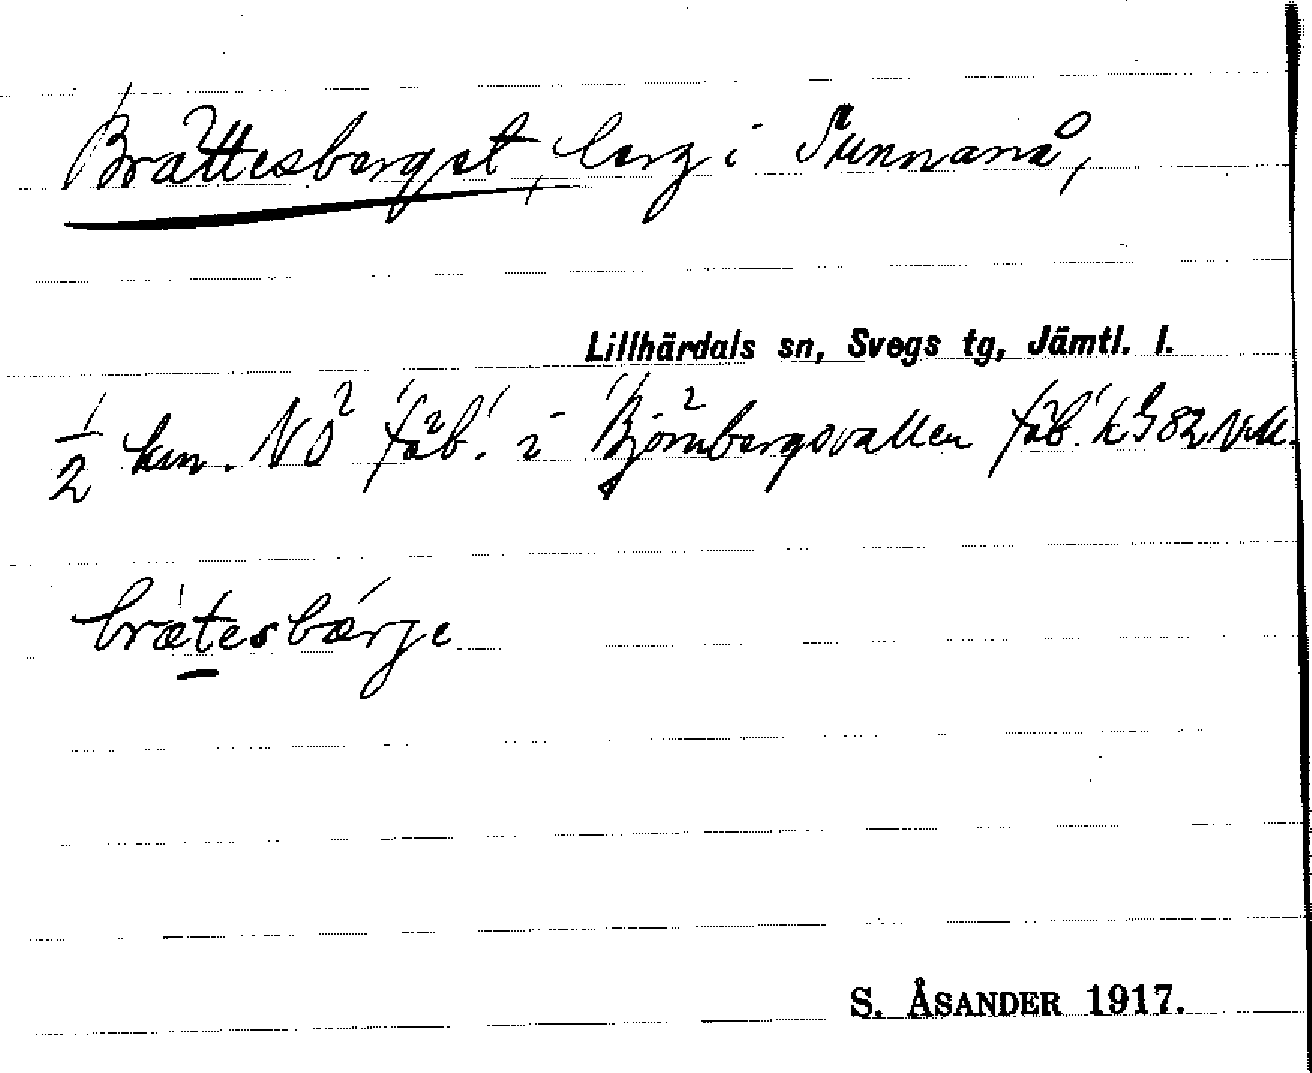 Brättesberget, berg i Sunnanå,
Lillhärdals sn, Svegs tg, Jämtl. l.
1/2 km. NÖ fäb. i Björnbergsvallen fäb. kG82
brætesbærje
S. ÅSANDER 1917.